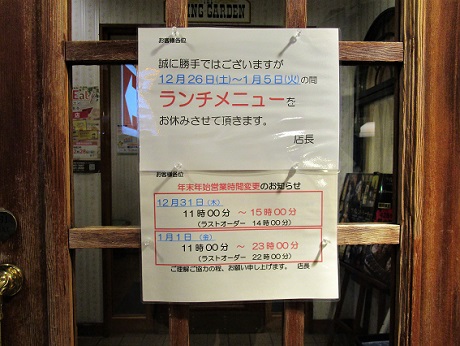 KING GARDEN
お客様各位
誠に勝手ではございますが
12月26日(土)～1月5日(火)の間
ランチメニューを
お休みさせて頂きます。
店長
お客様各位
年末年始営業時間変更のお知らせ
12月31日(木)
11時00分 ～ 15時00分
(ラストオーダー 14時00分)
1月1日(金)
11時00分 ～ 23時00分
(ラストオーダー 22時00分)
ご理解ご協力の程、お願い申し上げます。 店長